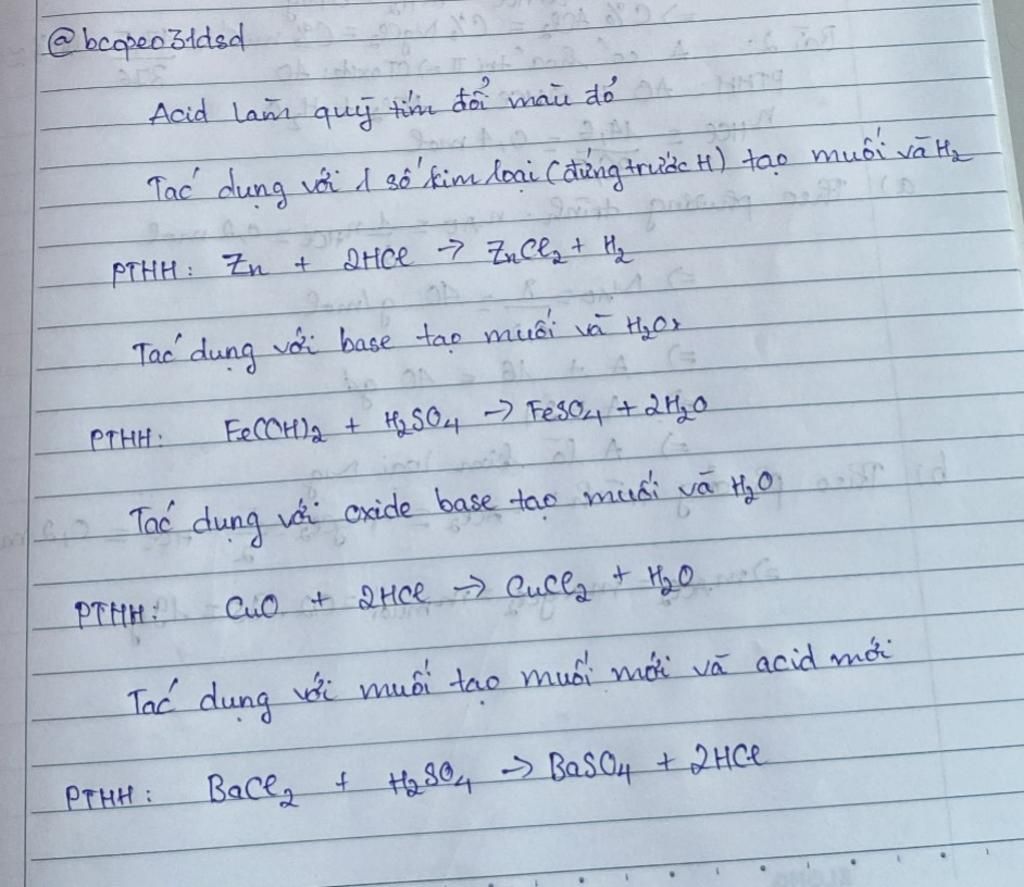 @bcqpeo31dsd
Acid làm quỳ tím đổi màu đỏ
Tác dụng với 1 số kim loại (đứng trước H) tạo muối và H₂
PTHH: Zn + 2HCl → ZnCl₂ + H₂
Tác dụng với base tạo muối và H₂O
PTHH: Fe(OH)₂ + H₂SO₄ → FeSO₄ + 2H₂O
Tác dụng với oxide base tạo muối và H₂O
PTHH: CuO + 2HCl → CuCl₂ + H₂O
Tác dụng với muối tạo muối mới và acid mới
PTHH: BaCl₂ + H₂SO₄ → BaSO₄ + 2HCl